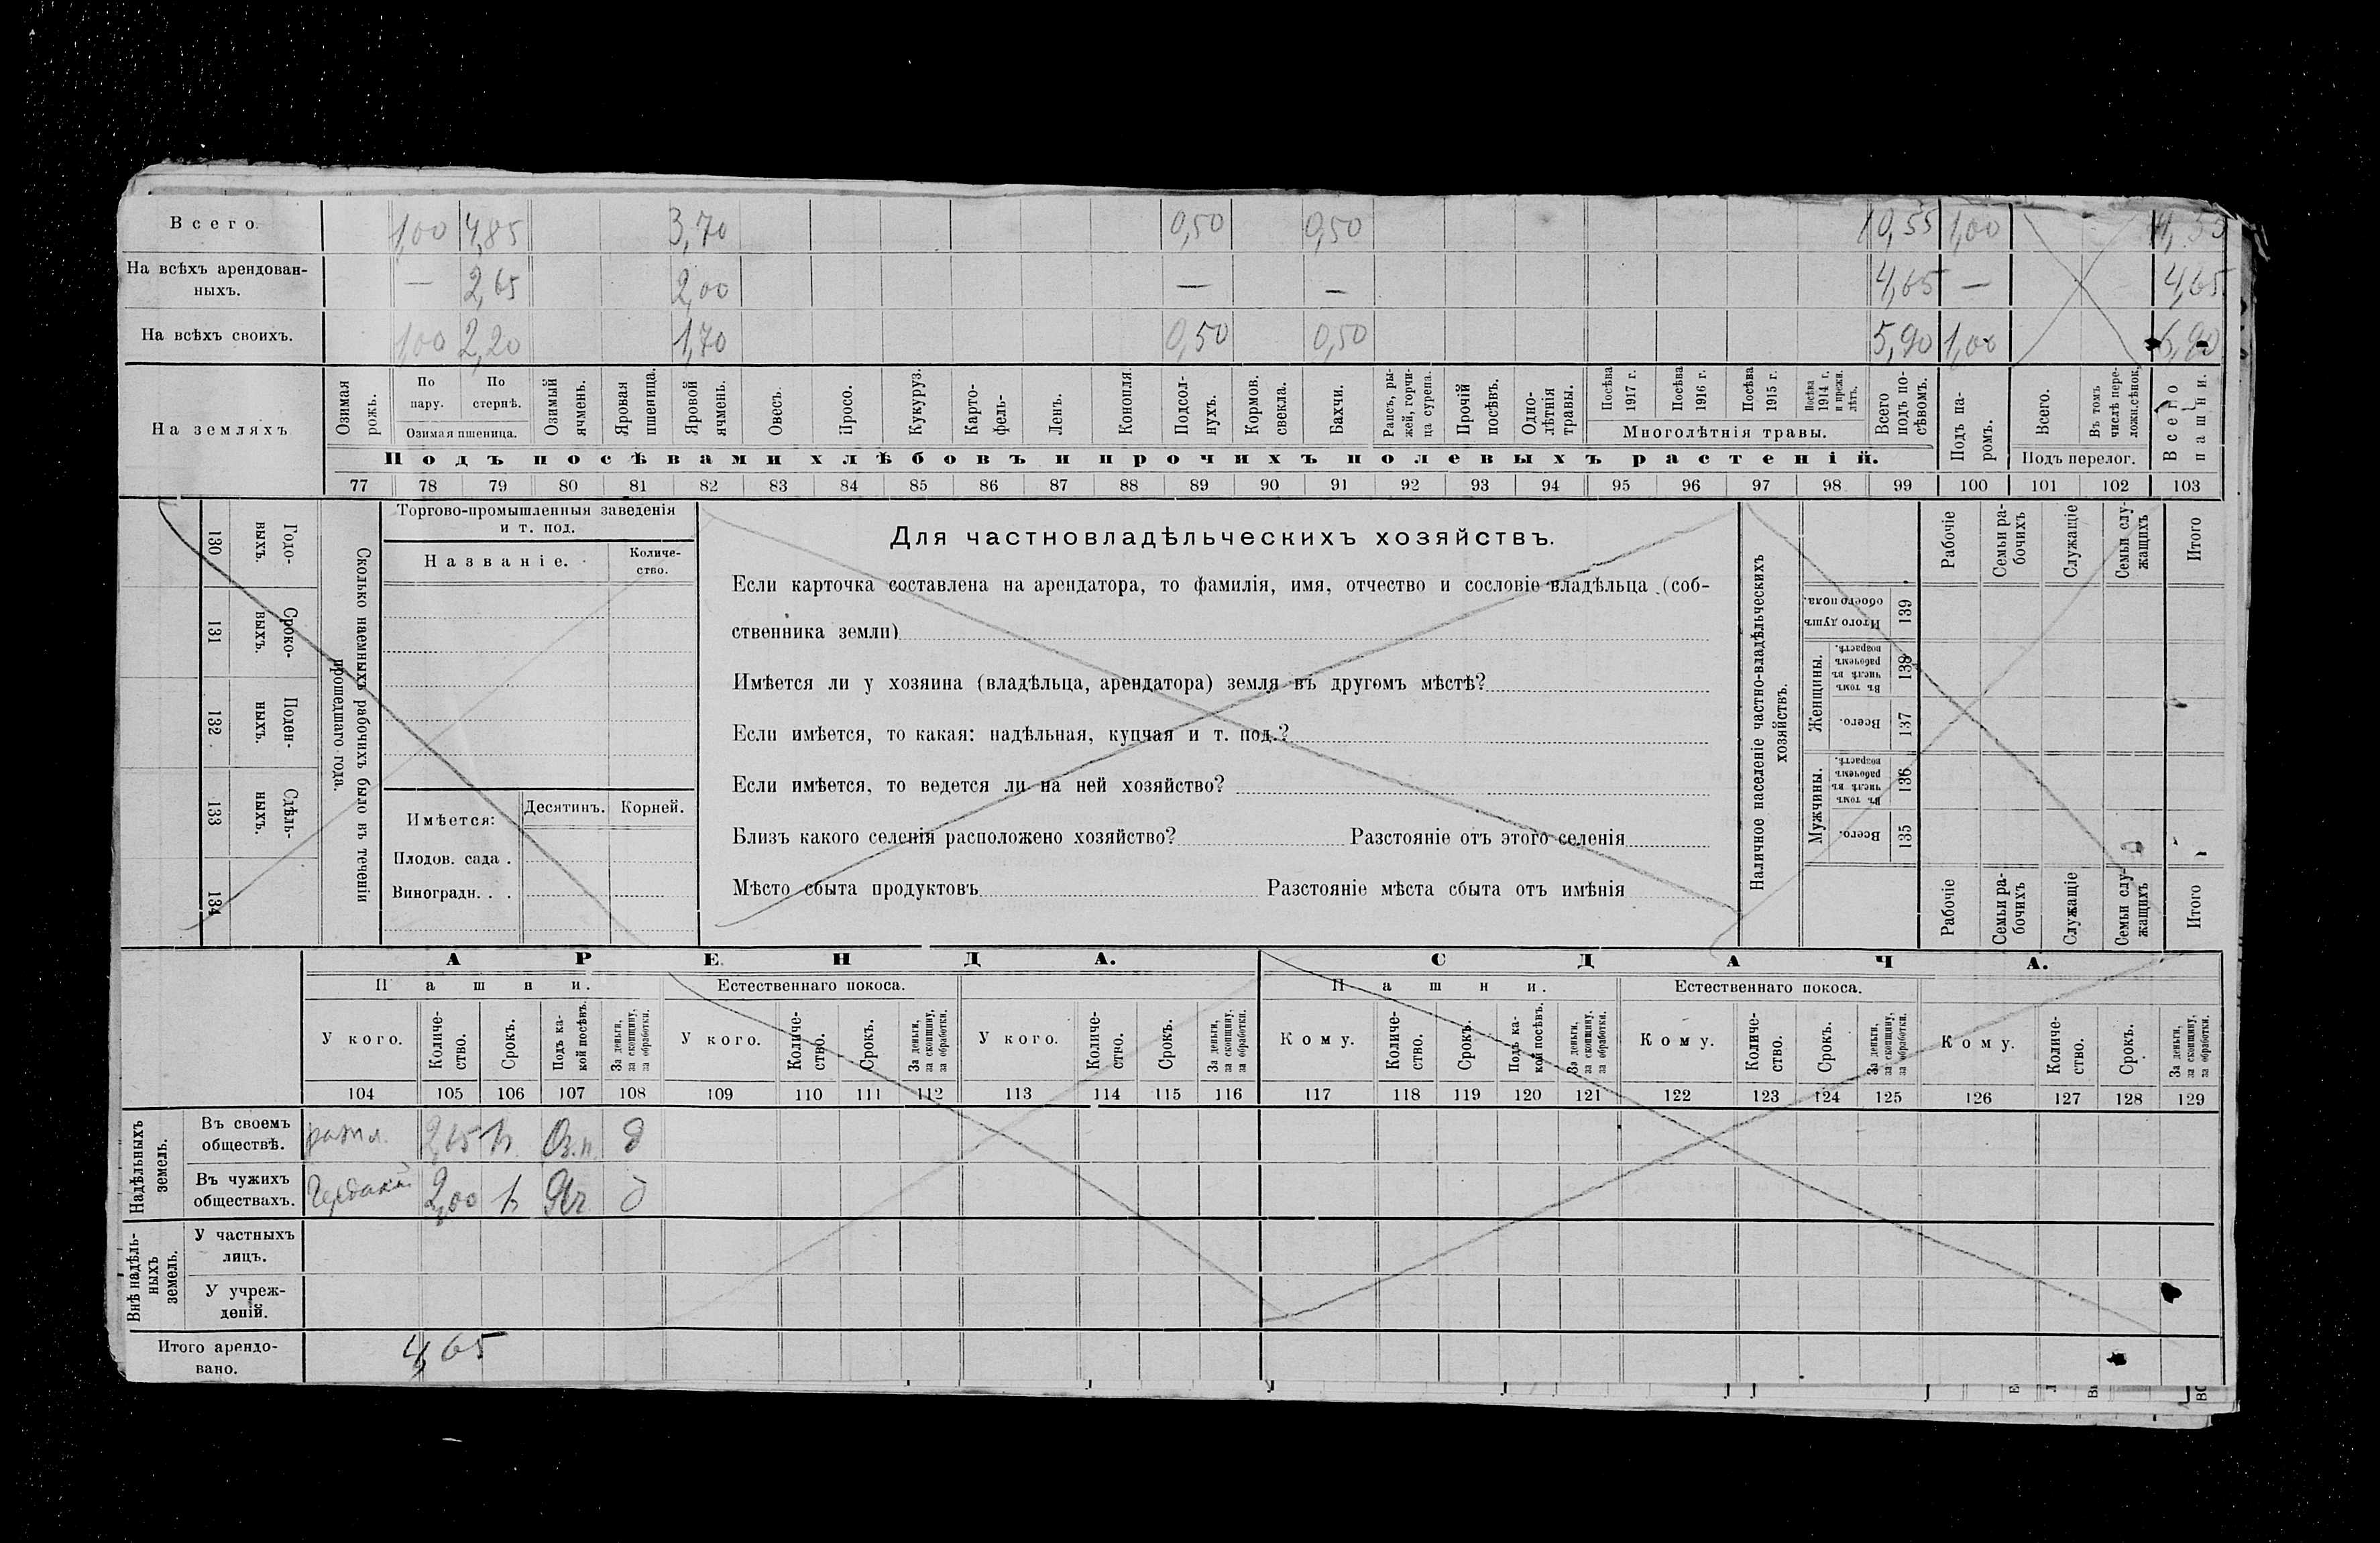 Всего. 1,00 4,85 3,70 0,50 0,50 10,55 1,00
На всѣхъ арендован-
ныхъ. — 2,65 2,00 — — 4,65 — 4,65
На всѣхъ своихъ. 1,00 2,20 1,70 0,50 0,50 5,90 1,00 6,90
На земляхъ
Озимая рожь.
По пару.
По стернѣ.
Озимая пшеница.
Озимый ячмень.
Яровая пшеница.
Яровой ячмень.
Овесъ.
Просо.
Кукуруз.
Карто-
фель-
Ленъ.
Конопля.
Подсол-
нухъ.
Кормов. свекла.
Бахчи.
Рапсъ, ры-
жей, горчи-
ца сурепа.
Прочій посѣвъ.
Одно-
лѣтнія травы.
Посѣва 1917 г.
Посѣва 1916 г.
Посѣва 1915 г.
Посѣва 1914 г. и прежн. лѣтъ.
Многолѣтнія травы.
Всего подъ по-
сѣвомъ.
Подъ па-
ромъ.
Всего.
Въ томъ числѣ пере-
ложн.сѣнок.
Подъ перелог.
Всего пашни.
Подъ посѣвами хлѣбовъ и прочихъ полевыхъ растеній.
77 78 79 80 81 82 83 84 85 86 87 88 89 90 91 92 93 94 95 96 97 98 99 100 101 102 103
130 Годо-
выхъ.
131 Сроко-
ныхъ.
132 Поден-
ныхъ.
133 Сдѣль-
ныхъ.
134
Сколько наемныхъ рабочихъ было въ теченіи
прошедшаго года.
Торгово-промышленныя заведенія
и т. под.
Названіе.
Количе-
ство.
Имѣется:
Десятинъ. Корней.
Плодов. сада .
Виноградн. . .
Для частновладѣльческихъ хозяйствъ.
Если карточка составлена на арендатора, то фамилія, имя, отчество и сословіе владѣльца (соб-
ственника земли)
Имѣется ли у хозяина (владѣльца, арендатора) земля въ другомъ мѣстѣ?
Если имѣется, то какая: надѣльная, купчая и т. под.?
Если имѣется, то ведется ли на ней хозяйство?
Близъ какого селенія расположено хозяйство? Разстояніе отъ этого селенія
Мѣсто сбыта продуктовъ Разстояніе мѣста сбыта отъ имѣнія
Наличное населеніе частно-владѣльческихъ
хозяйствъ.
Итого душъ
обоего пола. 139
Женщины.
Въ томъ числѣ въ рабочемъ возрастѣ. 138
Всего. 137
Мужчины.
Въ томъ числѣ въ рабочемъ возрастѣ. 136
Всего. 135
Рабочіе
Семьи ра-
бочихъ
Служащіе
Семьи слу-
жащихъ
Итого
Рабочіе
Семьи ра-
бочихъ
Служащіе
Семьи слу-
жащихъ
Итого
АРЕНДА. СДАЧА.
Пашни. Естественнаго покоса. Пашни. Естественнаго покоса.
У кого.
Количе-
ство.
Срокъ.
Подъ ка-
кой посѣвъ.
За деньги,
за скопщину,
за обработки.
У кого.
Количе-
ство.
Срокъ.
За деньги,
за скопщину,
за обработки.
У кого.
Количе-
ство.
Срокъ.
За деньги,
за скопщину,
за обработки.
Кому.
Количе-
ство.
Срокъ.
Подъ ка-
кой посѣвъ.
За деньги,
за скопщину,
за обработки.
Кому.
Количе-
ство.
Срокъ.
За деньги,
за скопщину,
за обработки.
Кому.
Количе-
ство.
Срокъ.
За деньги,
за скопщину,
за обработки.
104 105 106 107 108 109 110 111 112 113 114 115 116 117 118 119 120 121 122 123 124 125 126 127 128 129
Надѣльныхъ
земель.
Въ своемъ
обществѣ. 2,65 Оз.п. д
Въ чужихъ
обществахъ. 2,00 Яч д
Внѣ надѣль-
ныхъ
земель.
У частныхъ
лицъ.
У учреж-
деній.
Итого арендо-
вано. 4,65